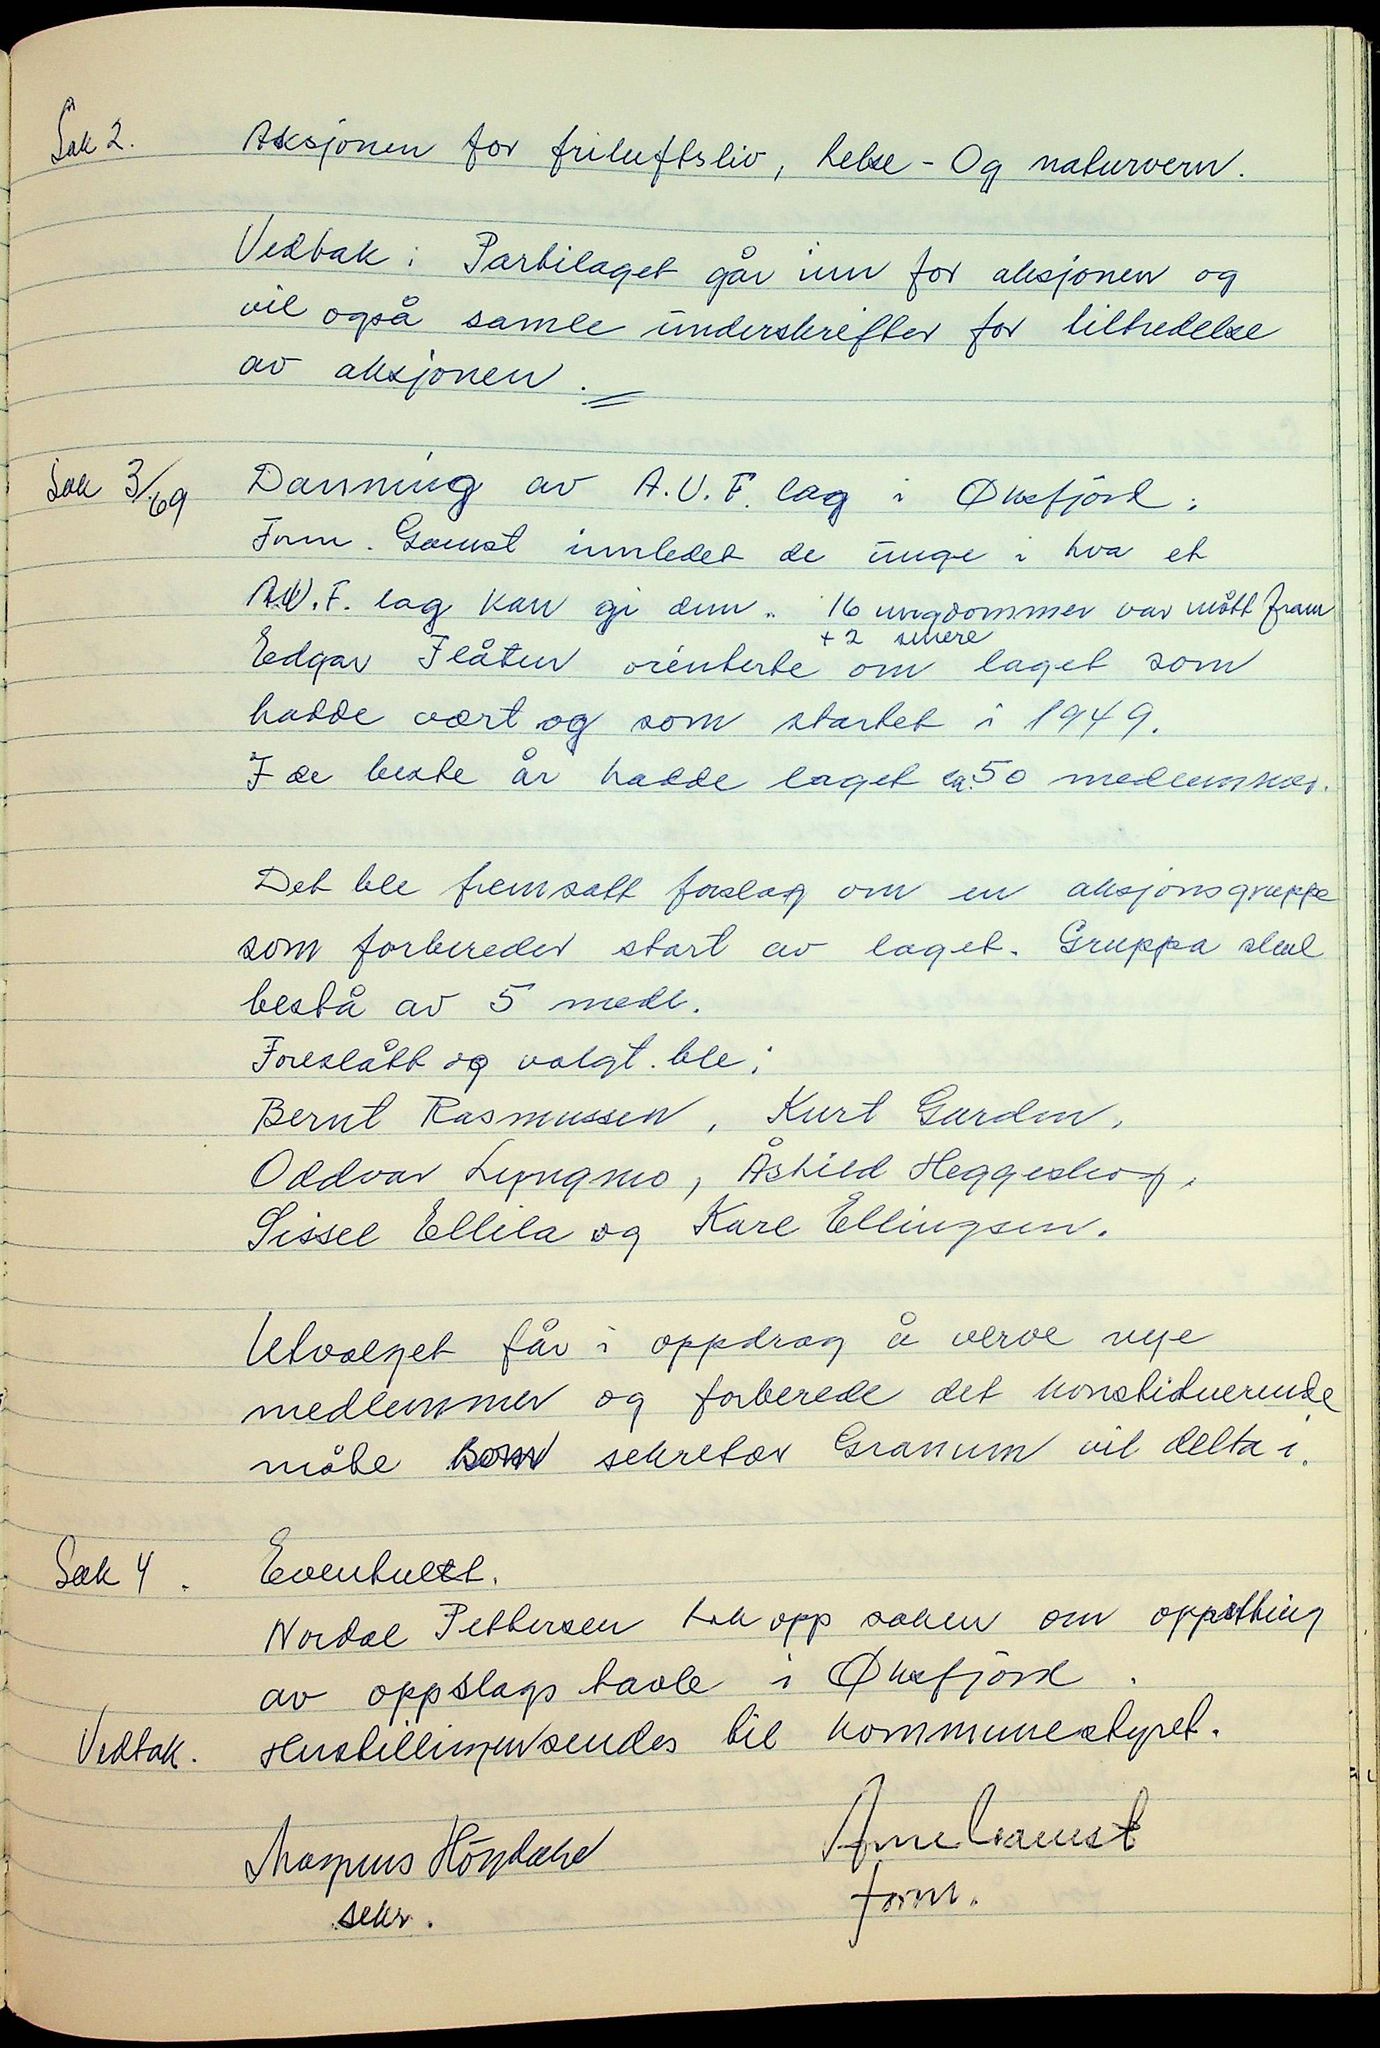 Sak 2. Aksjonen for friluftsliv, helse - Og naturvern.
Vedtak : Partilaget går inn for aksjonen og
vil også samle underskrifter for tiltredelse
av aksjonen.
Sak 3/69 Danning av A.U.F. lag i Øksfjord.
Form. Gamst innledet de unge i hva et
A.U.F. lag kan gi dem. 16 ungdommer var møtt fram
+ 2 senere
Edgar Flåten orienterte om laget som
hadde vært og som startet i 1949.
I de beste år hadde laget ca. 50 medlemmer.
Det ble fremsatt forslag om en aksjonsgruppe
som forbereder start av laget. Gruppa skal
bestå av 5 medl.
Foreslått og valgt ble;
Bernt Rasmussen, Kurt Garden,
Oddvar Lyngmo, Åshild Heggeskog,
Sissel Ellila og Kare Ellingsen.
Utvalget får i oppdrag å verve nye
medlemmer og forberede det konstituerende
møte som sekretær Granum vil delta i.
Sak 4. Eventuelt.
Nordal Pettersen tok opp saken om oppsetting
av oppslags tavle i Øksfjord.
Vedtak. Henstillingen sendes til kommunestyret.
Magnus Arne Gamst
sekr. form.